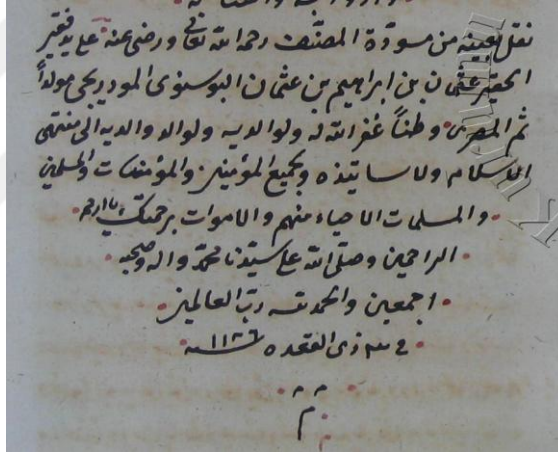 نقل بعينه من مسودة المصنف رحمه الله تعالى ورضى عنه على يد فقير
الحقير عثمان بن ابراهيم بن عثمان البوسنوى المودريجى مولداً
ثم المصرى وطناً غفر الله له ولوالديه ولوالد والديه الى منتهى
الاسلام ولاساتيذه وجميع المؤمنين والمؤمنات والمسلمين
والمسلمات الاحياء منهم والاموات برحمتك يا ارحم
الراحمين وصلى الله على سيدنا محمد واله وصحبه
اجمعين والحمد لله رب العالمين
ذى القعده سنه